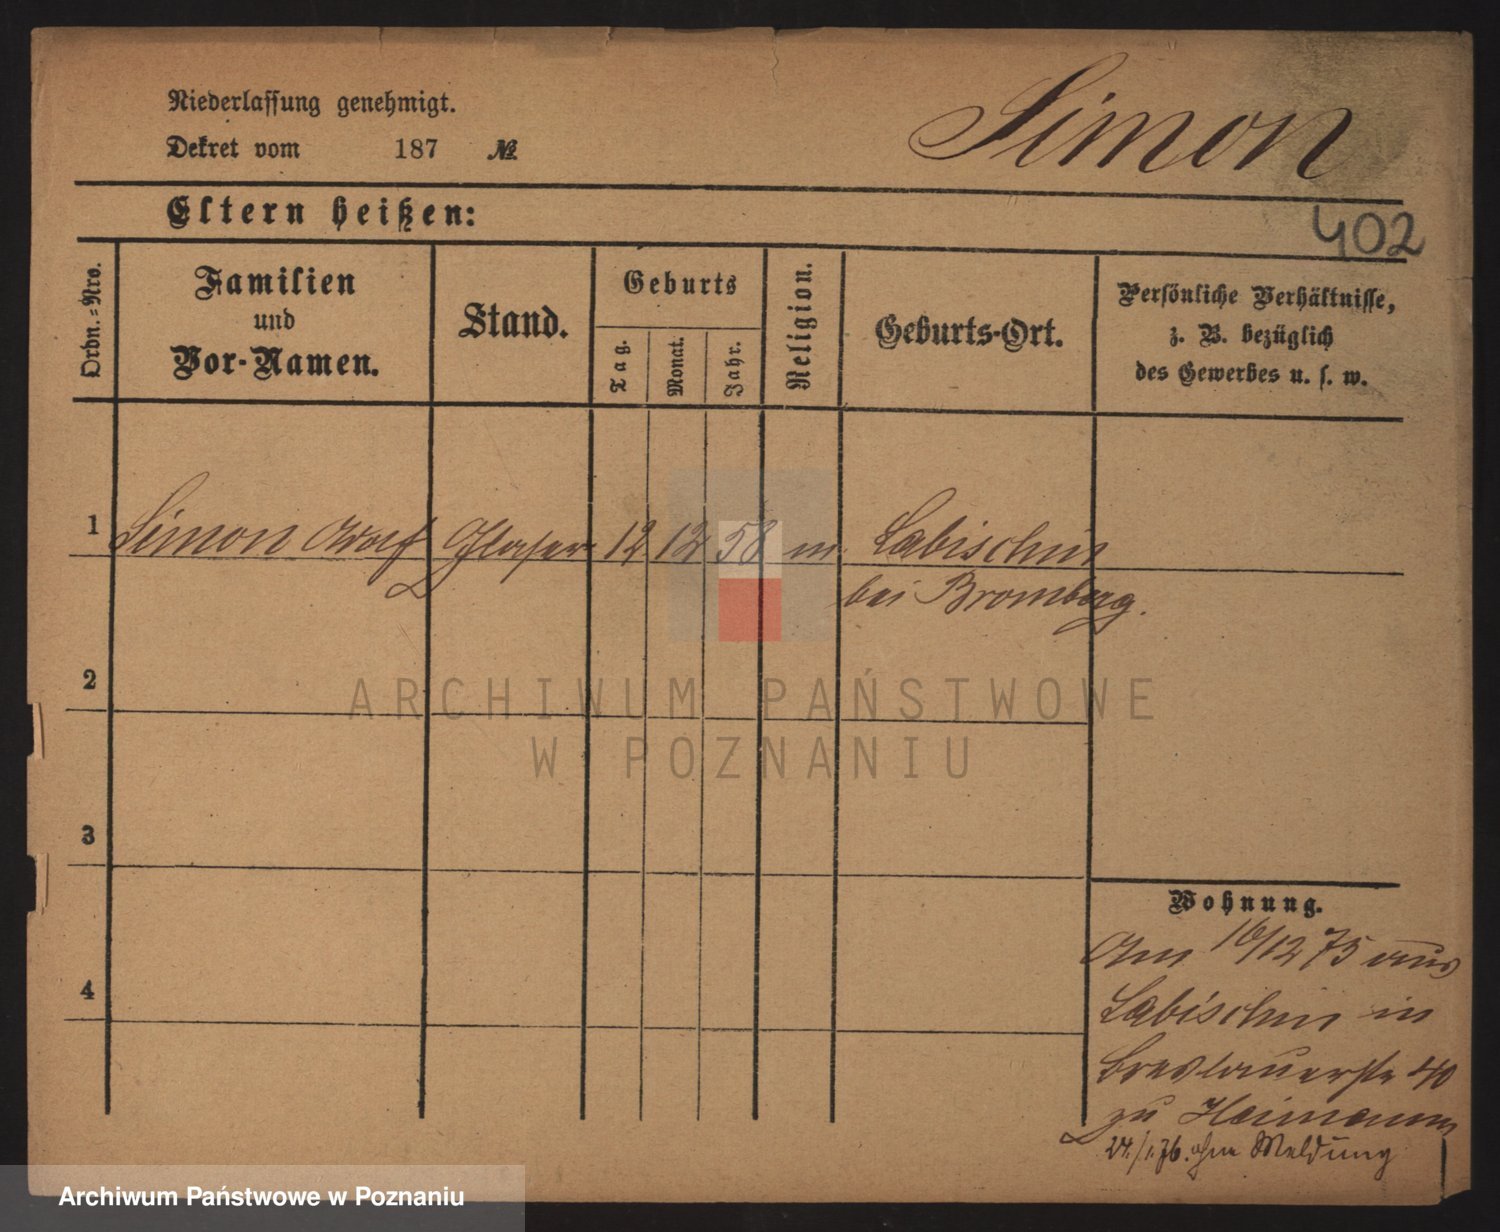 Niederlassung genehmigt.
Dekret vom 187 №
Simon
Eltern heißen:
402
Ordn.-Nro.
Familien
und
Vor-Namen.
Stand.
Geburts
Tag.
Monat.
Jahr.
Religion.
Geburts-Ort.
Persönliche Verhältnisse,
z. B. bezüglich
des Gewerbes u. s. w.
1 Simon Adolf Glaser 12 12 58 m. Labischin
bei Bromberg.
2
ARCHIWUM PAŃSTWOWE
W POZNANIU
3
Wohnung.
Am 16/12 75 aus
4
Labischin in
Breslauerstr 40
zu Heimann
24./1.76. ohne Meldung
Archiwum Państwowe w Poznaniu